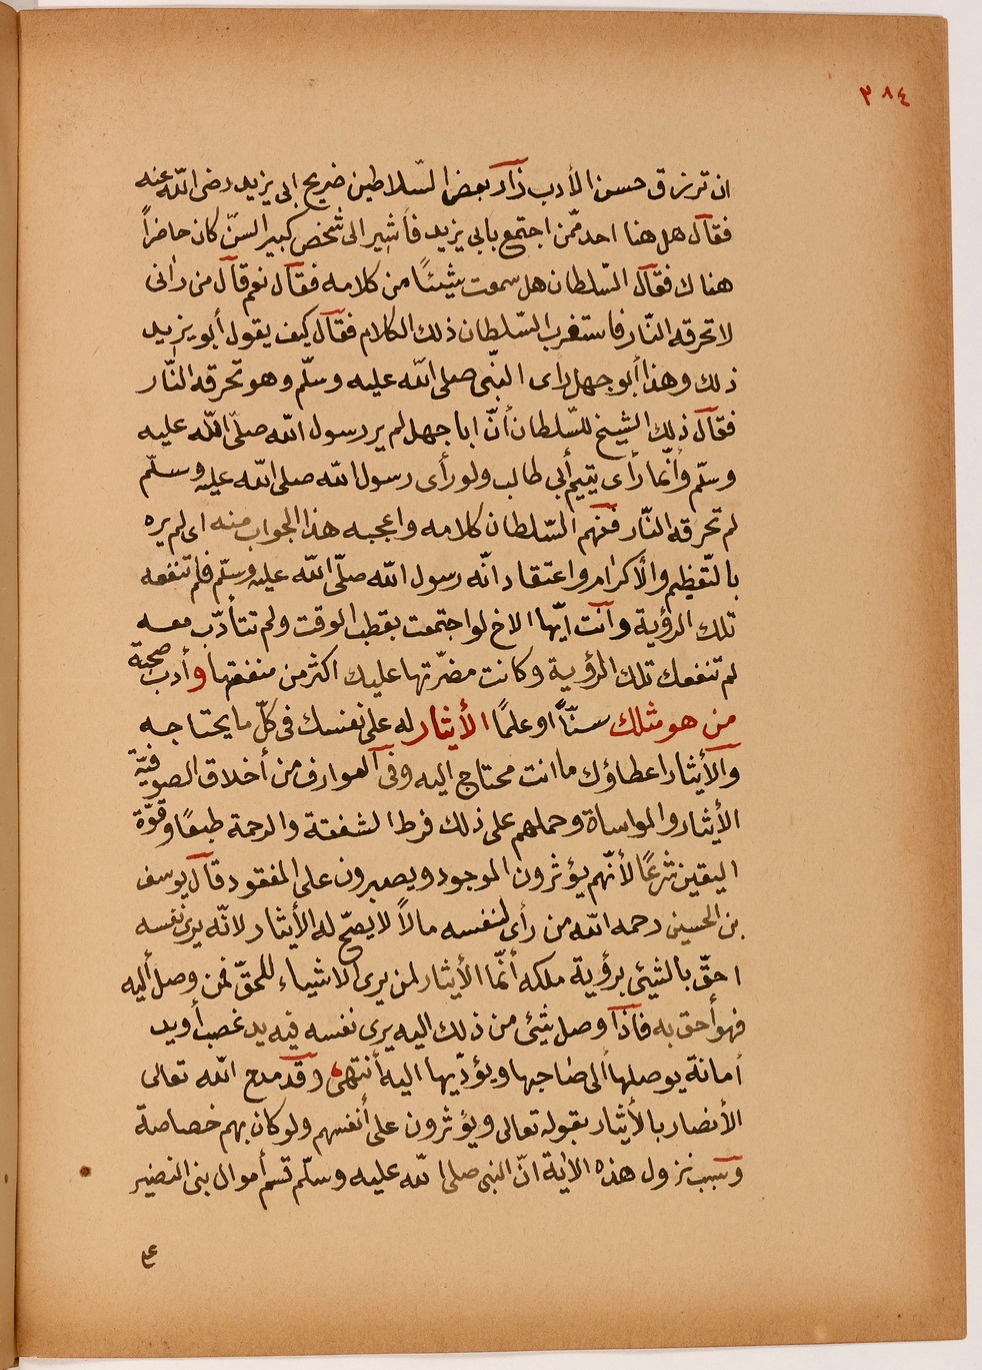 ٣٨٤
ان ترزق حسن الأدب زار بعض السّلاطين ضريح ابى يزيد رضى اللّه عنه
فقال هل هنا احد ممّن اجتمع بابى يزيد فأشير الى شخص كبير السنّ كان حاضراً
هناك فقال السّلطان هل سمعت شيئًا من كلامه فقال نعم قال من رأنى
لا تحرقه النّار فاستغرب السّلطان ذلك الكلام فقال كيف يقول أبو يزيد
ذلك وهذا أبو جهل رأى النّبى صلى اللّه عليه وسلّم وهو تحرقه النّار
فقال ذلك الشيخ للسّلطان أنّ ابا جهل لم ير رسول اللّه صلّى اللّه عليه
وسلّم وأنّما رأى يتيم أبى طالب ولو رأى رسول اللّه صلى اللّه عليه وسلّم
لم تحرقه النّار ففهم السّلطان كلامه واعجبه هذا الجواب منه اى لم يره
بالتّعظيم والأكرام واعتقاد انّه رسول اللّه صلّى اللّه عليه وسلّم فلم تنفعه
تلك الرؤية وأنت ايّها الاخ لو اجتمعت بقطب الوقت ولم تتأدّب معه
لم تنفعك تلك الرؤية وكانت مضرّتها عليك اكثر من منفعتها وأدب صحبة
من هو مثلك سنّاً او علمًا الأيثار له على نفسك فى كلّ ما يحتاجه
والأيثار اعطاؤك ما انت محتاج اليه وفى العوارف من أخلاق الصوفيّة
الأيثار والمواساة وحملهم على ذلك فرط الشفقة والرحمة طبعًا وقوّة
اليقين شرعًا لأنّهم يؤثرون الموجود ويصبرون على المفقود قال يوسف
بن الحسين رحمه اللّه من رأى لنفسه مالاً لا يصحّ له الأيثار لانّه يرى نفسه
احقّ بالشيئ برؤية ملكه أنّما الأيثار لمن يرى الاشياء للحقّ فمن وصل أليه
فهو أحق به فاذا وصل شيئ من ذلك اليه يرى نفسه فيه يد غصب أويد
أمانة يوصلها ألى صاحبها ويؤدّيها اليه أنتهى وقد مدح اللّه تعالى
الأنصار بالأيثار بقوله تعالى ويؤثرون على أنفسهم ولو كان بهم خصاصة
وسبب نزول هذه الأية انّ النبى صلى اللّه عليه وسلّم قسم أموال بنى النضير